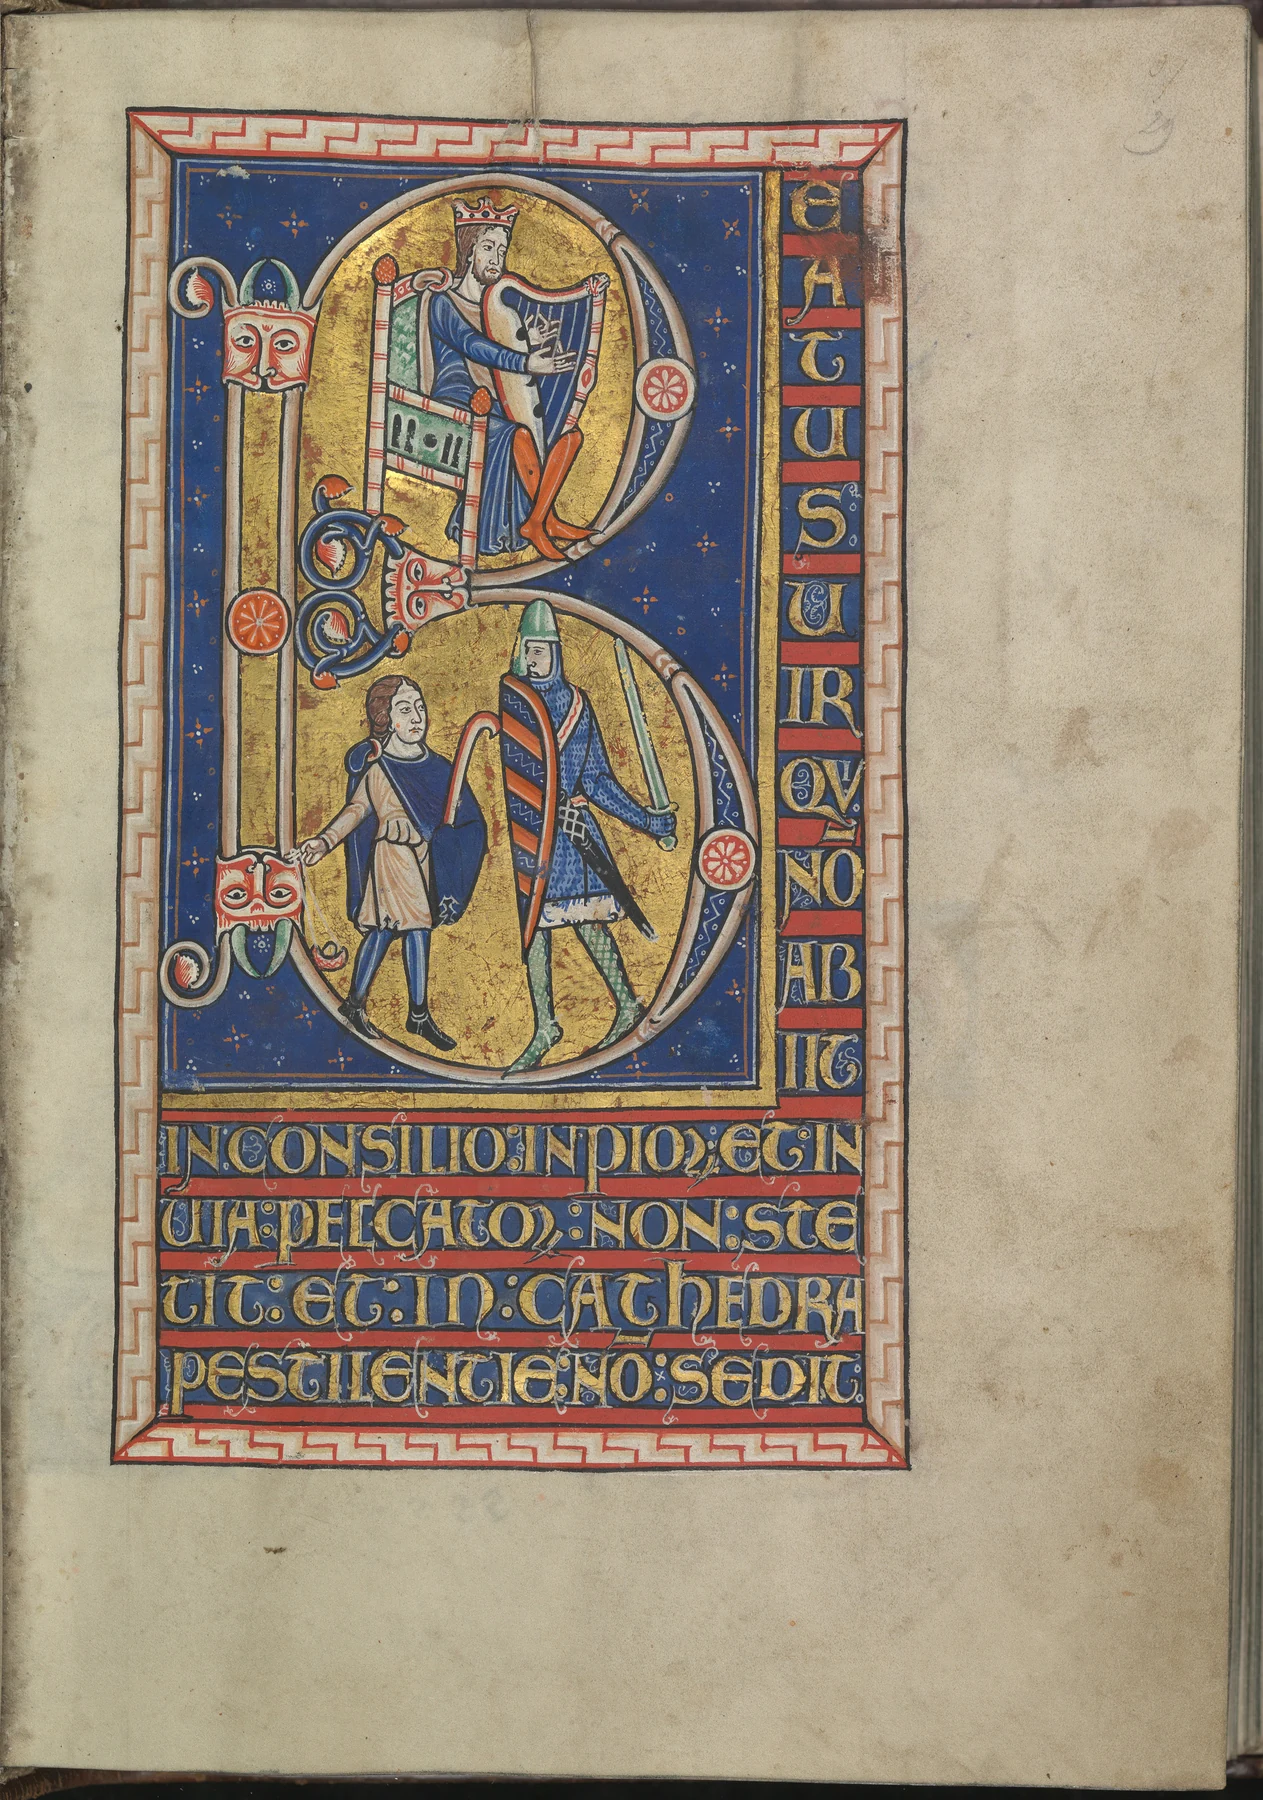 B
E
A
T
U
S
U
IR
QUI
NO
AB
IIT
IN CONSILIO: INPIOꝜ; ET IN
UIA: PECCATOꝜ: NON: STE
TIT: ET: IN: CATHEDRA
PESTILENTIE: NO: SEDIT: